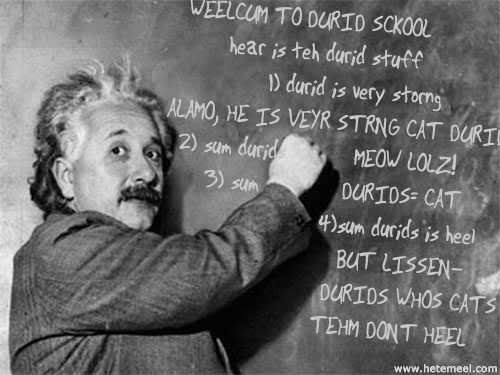 WEELCUM TO DURID SCKOOL
hear is teh durid stuff
1) durid is very storng
ALAMO, HE IS VEYR STRNG CAT DURI
2) sum durid
MEOW LOLZ!
3) sum
DURIDS= CAT
4)sum durids is heel
BUT LISSEN-
DURIDS WHOS CATS
TEHM DONT HEEL
www.hetemeel.com